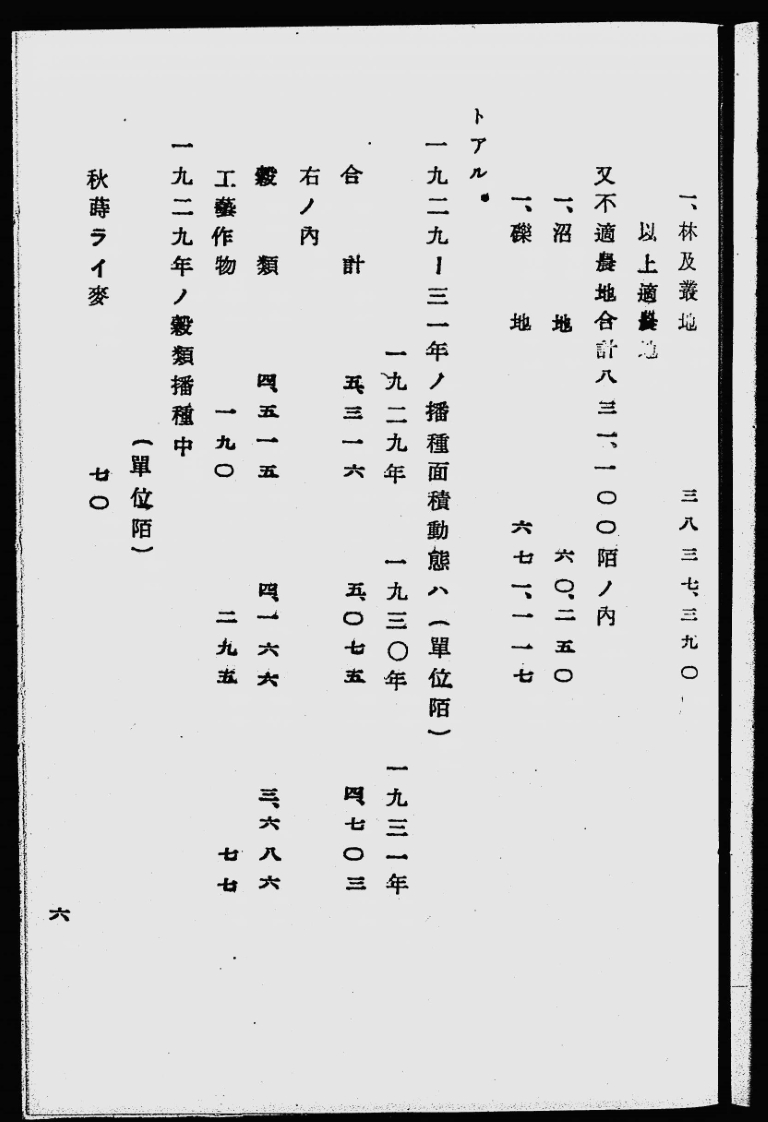 一、林及叢地　三八三七、三九〇
以上適農地
又不適農地合計八三一、一〇〇陌ノ內
一、沼地　六〇、二五〇
一、礫地　六七一、一一七
トアル。
一九二九ー三一年ノ播種面積動態ハ（單位陌）
一九二九年　一九三〇年　一九三一年
合計　五、三一六　五、〇七五　四、七〇三
右ノ內
穀類　四、五一五　四、一六六　三、六八六
工藝作物　一九〇　二九五　七七
一九二九年ノ穀類播種中
（單位陌）
秋蒔ライ麥　七〇
六